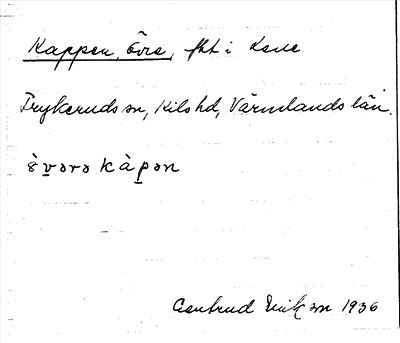 Kappen, övre, fht i Lene
Frykeruds sn, Kils hd, Värmlands län.
ö̀vərə kàpən
Gertrud Erikson 1936